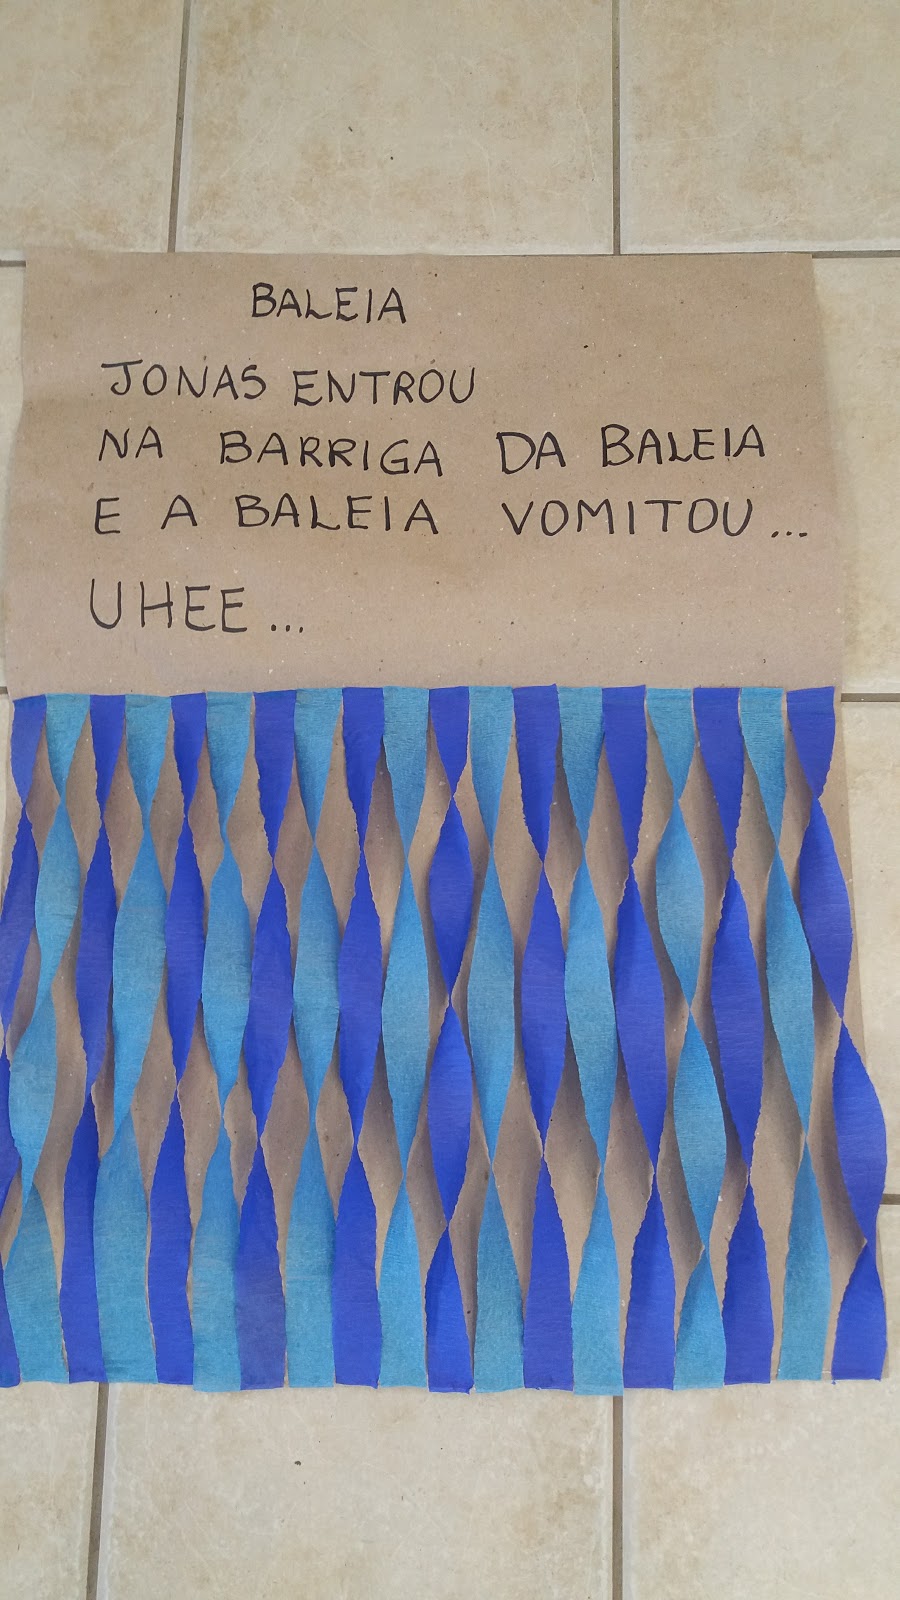 BALEIA
JONAS ENTROU
NA BARRIGA DA BALEIA
E A BALEIA VOMITOU...
UHEE...